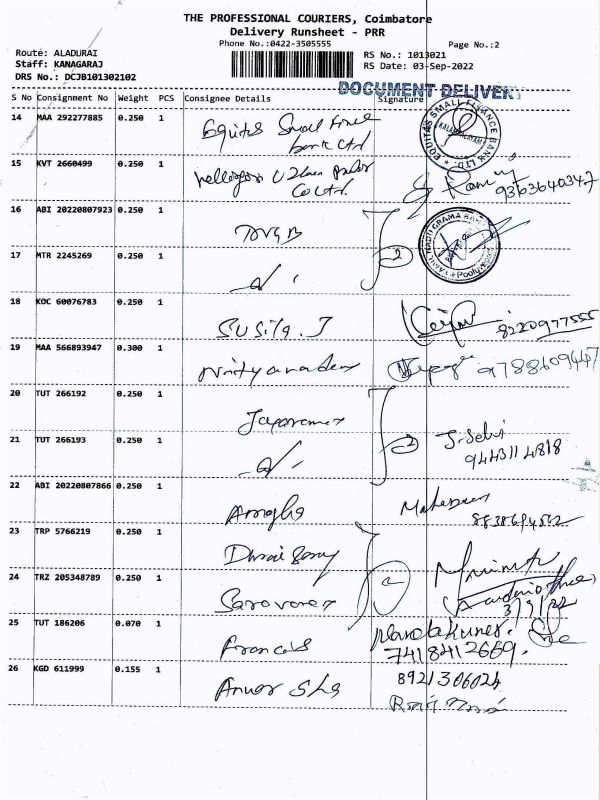 THE PROFESSIONAL COURIERS, Coimbatore
Delivery Runsheet - PRR
Phone No.:0422-3505555
Page No.:2
Route: ALADURAI
Staff: KANAGARAJ
DRS No.: DCJB101302102
RS No.: 1013021
RS Date: 03-Sep-2022
DOCUMENT DELIVER
S No Consignment No Weight PCS Consignee Details Signature
14 MAA 292277885 0.250 1 Equitas Small Fince
bank Ltd
EQUITAS SMALL FINANCE BANK LTD.
15 KVT 2660499 0.250 1
Co Ltd.
9363640347
16 ABI 20220807923 0.250 1 TNGB
2
TAMIL NADU GRAMA BANK
17 MTR 2245269 0.250 1
18 KOC 60076783 0.250 1 Susila. J
8220977555
19 MAA 566893947 0.300 1 Nityanandam
9788609447
20 TUT 266192 0.250 1 Jayaraman
2
J. Selvi
9443114818
21 TUT 266193 0.250 1
22 ABI 20220807866 0.250 1
8838694562
23 TRP 5766219 0.250 1 Durai Samy
24 TRZ 205348789 0.250 1 Saravanan
3/9/22
25 TUT 186206 0.070 1 Francis
7418412669.
26 KGD 611999 0.155 1 Anwar Sha
8921306024